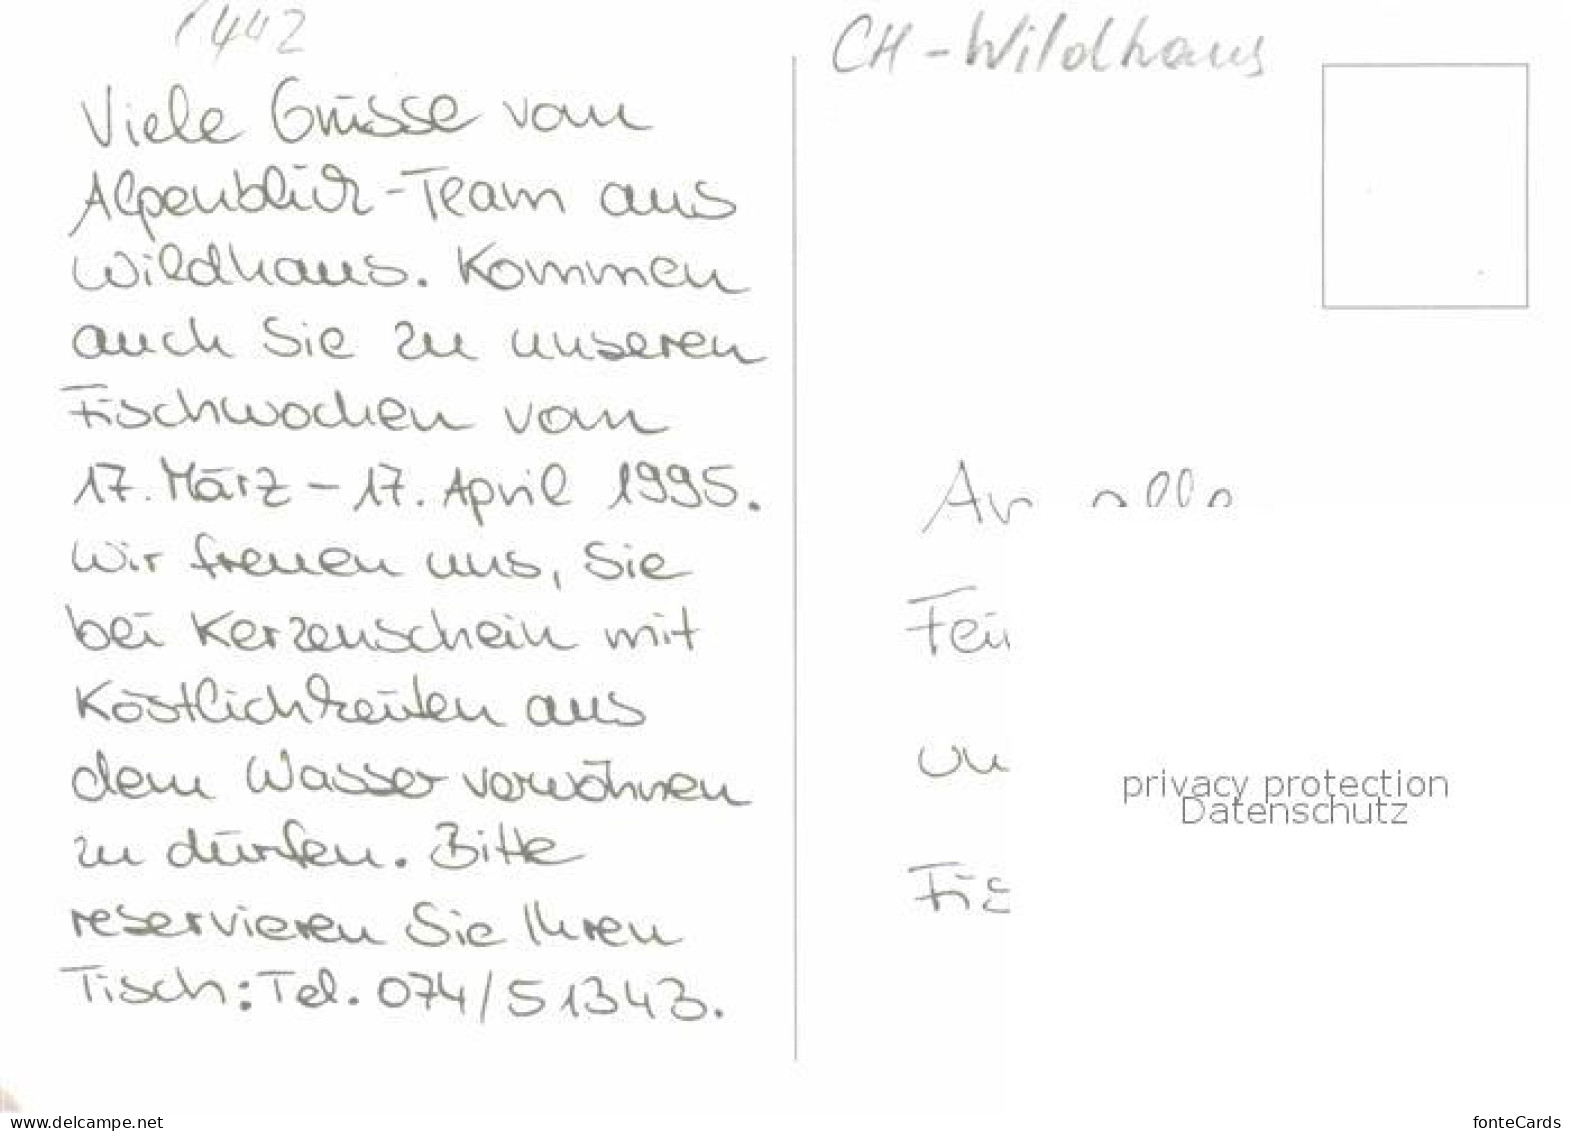 1442
CH-Wildhaus
Viele Grüsse vom
Alpenblick-Team aus
Wildhaus. Kommen
auch Sie zu unseren
Fischwochen vom
17. März - 17. April 1995.
Wir freuen uns, Sie
bei Kerzenschein mit
Köstlichkeiten aus
dem Wasser verwöhnen
zu dürfen. Bitte
reservieren Sie Ihren
Tisch: Tel. 074/51343.
An alle
privacy protection
Datenschutz
www.delcampe.net
fonteCards